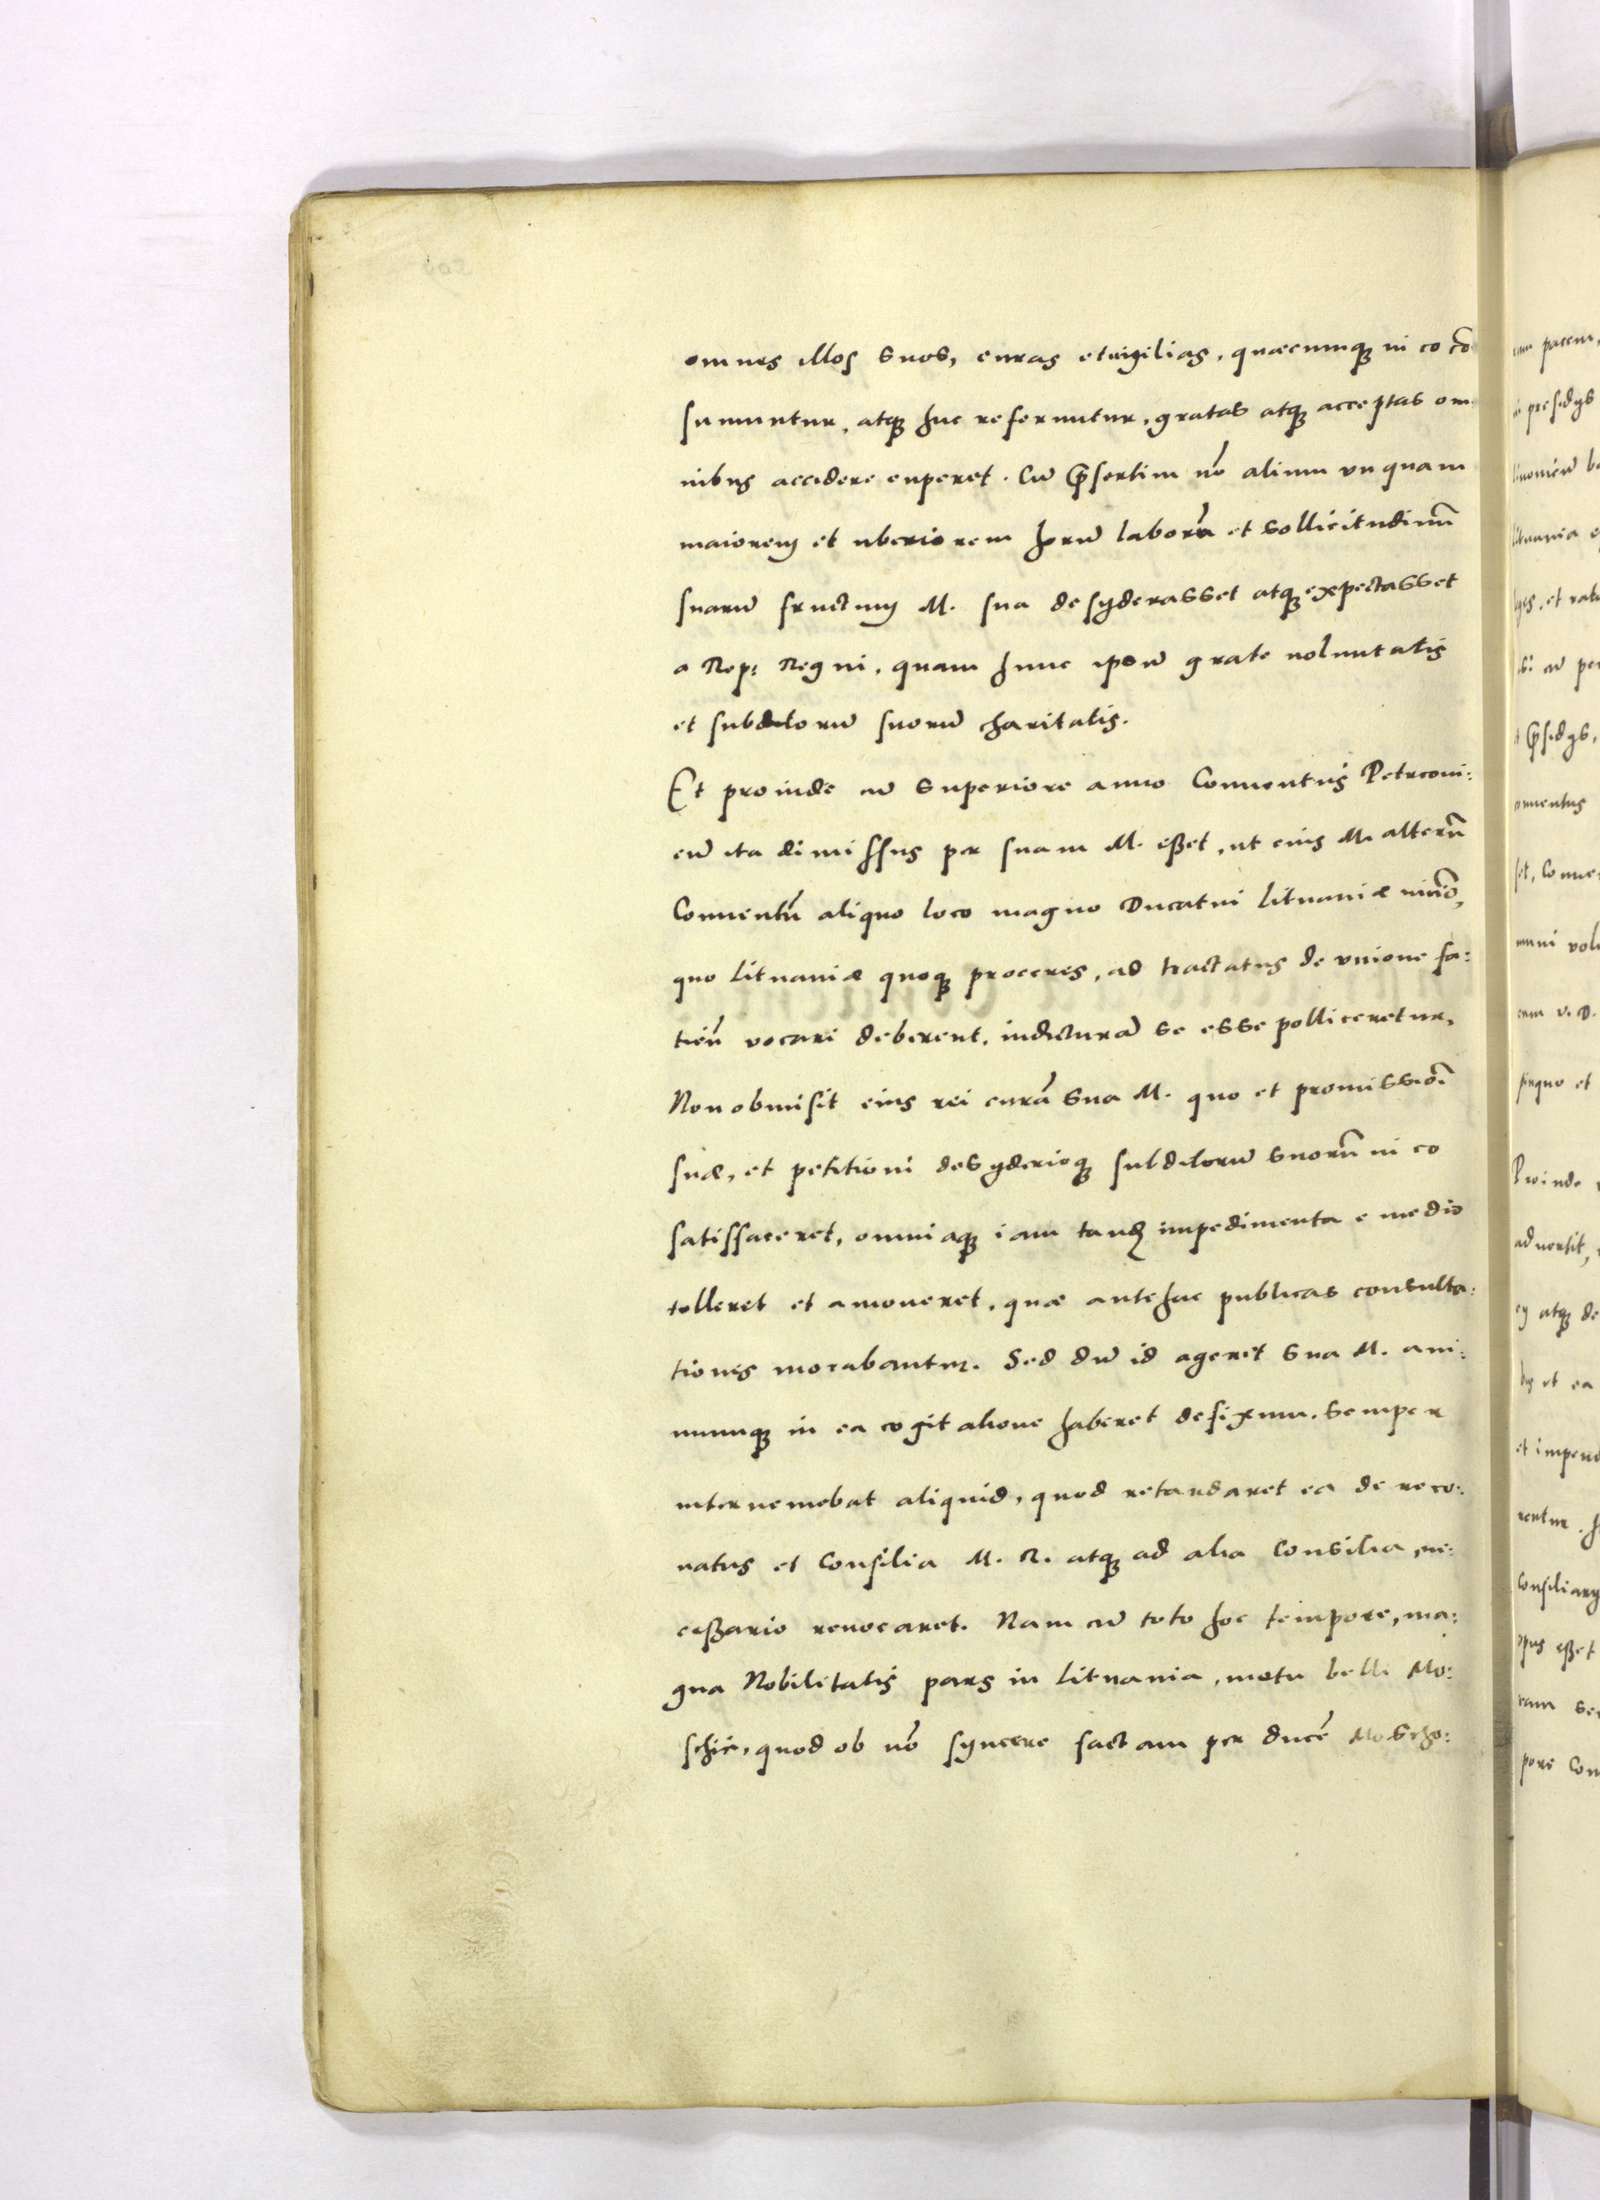 omnes illos suos, curas et uigilias, quæcunqꝫ in eo cō
sumuntur, atqꝫ huc referuntur, gratas atqꝫ acceptas om
nibus accidere cuperet. Cū p̄sertim nō alium vnquam
maiorem et uberiorem horū laborū et sollicitudinū
suarū fructum M. sua desyderasset atqꝫ expectasset
a Rep: Regni, quam hunc ipsū grate uoluntatis
et subditorū suorū charitatis.
Et proinde cū superiore anno Conuentus Petrcoui:
cū ita dimissus per suam M. eßet, ut eius M. alterū
Conuentū aliquo loco magno Ducatui Lituaniæ uicino,
quo Lituaniæ quoqꝫ proceres, ad tractatus de vnione fa:
ciēn vocari deberent, indicturā se esse polliceretur,
Non obmisit eius rei curā sua M. quo et promissiōi
suæ, et petitioni desyderioqꝫ subditorū suorū in eo
satisfaceret, omniaqꝫ iam tandē impedimenta e medio
tolleret et amoueret, quæ antehac publicas consulta:
tiones morabantur. Sed dū id ageret sua M. ani:
mumqꝫ in ea cogitatione haberet defixum, semper
interueniebat aliquid, quod retardaret ea de re co:
natus et Consilia M. R. atqꝫ ad alia Consilia, ne:
ceßario reuocaret. Nam cū toto hoc tempore, ma:
gna Nobilitatis pars in Lituania, metu belli Mo:
schici, quod ob nō syncere factam per ducē Moscho:
cum pacem,
p̄sidys,
conuentus
Proinde
aduersit,
ey atqꝫ de
et impend
Consiliary
opus eßet